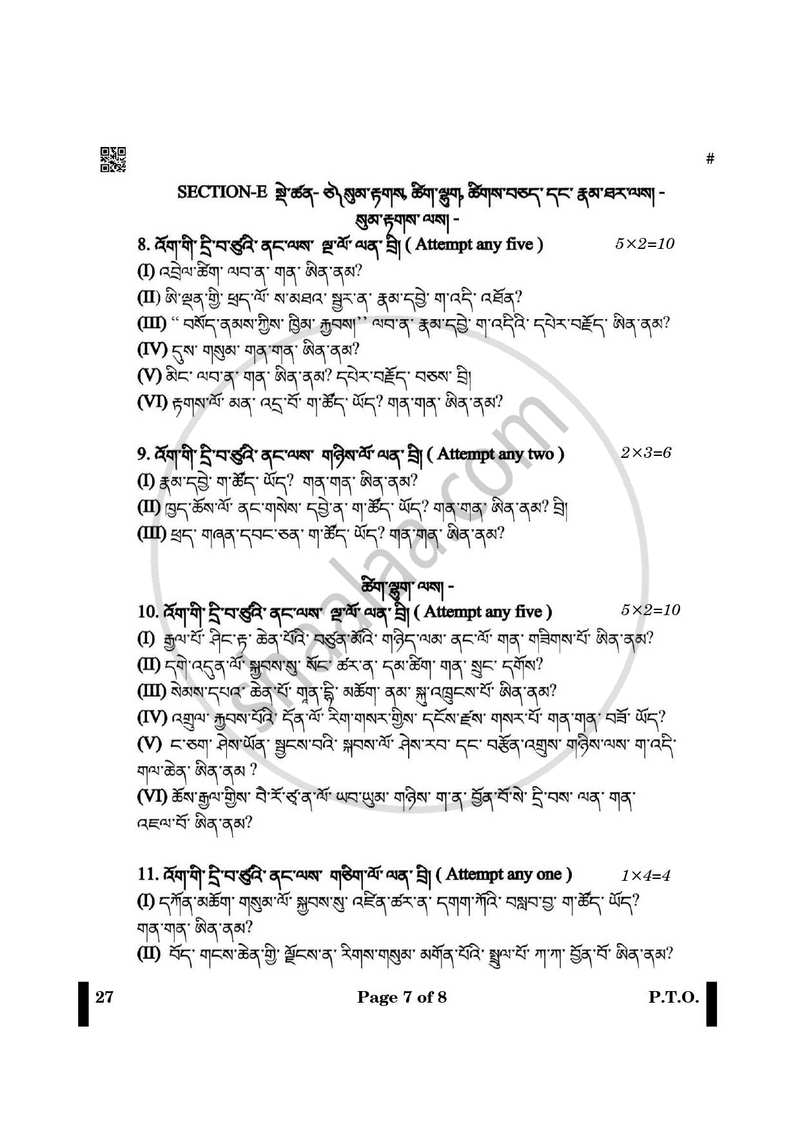 #
SECTION-E སྡེ་ཚན- ཅ༽ སུམ་རྟགས, ཚིག་ལྷུག, ཚིགས་བཅད་ དང་ རྣམ་ཐར་ལས། -
སུམ་རྟགས་ ལས། -
8. འོག་གི་ དྲི་བ་ཙུའི་ ནང་ལས་ ལྔ་ལོ་ ལན་ བྲི། ( Attempt any five ) 5×2=10
(I) འབྲེལ་ཚིག་ ལབ་ན་ གན་ ཨིན་ནམ?
(II) ཨི་ལྡན་གྱི་ ཕྲད་ལོ་ ས་མཐའ་ སྦྱར་ན་ རྣམ་དབྱེ་ ག་འདི་ འཐོན?
(III) “ བསོད་ནམས་ཀྱིས་ ཁྱིམ་ རྐྱབས།” ལབ་ན་ རྣམ་དབྱེ་ ག་འདིའི་ དཔེར་བརྗོད་ ཨིན་ནམ?
(IV) དུས་ གསུམ་ གན་གན་ ཨིན་ནམ?
(V) མིང་ ལབ་ན་ གན་ ཨིན་ནམ? དཔེར་བརྗོད་ བཅས་ བྲི།
(VI) རྟགས་ལོ་ མན་ འདྲ་བོ་ ག་ཚོད་ ཡོད? གན་གན་ ཨིན་ནམ?
9. འོག་གི་ དྲི་བ་ཙུའི་ ནང་ལས་ གཉིས་ལོ་ ལན་ བྲི། ( Attempt any two ) 2×3=6
(I) རྣམ་དབྱེ་ ག་ཚོད་ ཡོད? གན་གན་ ཨིན་ནམ?
(II) ཁྱད་ཆོས་ལོ་ ནང་གསེས་ དབྱེ་ན་ ག་ཚོད་ ཡོད? གན་གན་ ཨིན་ནམ? བྲི།
(III) ཕྲད་ གཞན་དབང་ཅན་ ག་ཚོད་ ཡོད? གན་གན་ ཨིན་ནམ?
ཚིག་ལྷུག་ ལས། -
10. འོག་གི་ དྲི་བ་ཙུའི་ ནང་ལས་ ལྔ་ལོ་ ལན་ བྲི། ( Attempt any five ) 5×2=10
(I) རྒྱལ་པོ་ ཤིང་རྟ་ ཆེན་པོའི་ བཙུན་མོའི་ གཉིད་ལམ་ ནང་ལོ་ གན་ གཟིགས་པོ་ ཨིན་ནམ?
(II) དགེ་འདུན་ལོ་ སྐྱབས་སུ་ སོང་ ཚར་ན་ དམ་ཚིག་ གན་ སྲུང་ དགོས?
(III) སེམས་དཔའ་ ཆེན་པོ་ གཱན་དྷི་ མཆོག་ ནམ་ སྐུ་འཁྲུངས་པོ་ ཨིན་ནམ?
(IV) འགྲུལ་ རྐྱབས་པོའི་ དོན་ལོ་ རིག་གསར་གྱིས་ དངོས་རྫས་ གསར་པོ་ གན་གན་ བཟོ་ ཡོད?
(V) ང་ཅག་ ཤེས་ཡོན་ སྦྱངས་བའི་ སྐབས་ལོ་ ཤེས་རབ་ དང་ བརྩོན་འགྲུས་ གཉིས་ལས་ ག་འདི་
གལ་ཆེན་ ཨིན་ནམ ?
(VI) ཆོས་རྒྱལ་གྱིས་ བཻ་རོ་ཙ་ན་ལོ་ ཡབ་ཡུམ་ གཉིས་ ག་ན་ བྱོན་བོ་སེ་ དྲི་བས་ ལན་ གན་
འཇལ་བོ་ ཨིན་ནམ?
11. འོག་གི་ དྲི་བ་ཙུའི་ ནང་ལས་ གཅིག་ལོ་ ལན་ བྲི། ( Attempt any one ) 1×4=4
(I) དཀོན་མཆོག་ གསུམ་ལོ་ སྐྱབས་སུ་ འཛིན་ཚར་ན་ དགག་ཀོའི་ བསླབ་བྱ་ ག་ཚོད་ ཡོད?
གན་གན་ ཨིན་ནམ?
(II) བོད་ གངས་ཆེན་གྱི་ ལྗོངས་ན་ རིགས་གསུམ་ མགོན་པོའི་ སྤྲུལ་པོ་ ཀ་ཀ་ བྱོན་བོ་ ཨིན་ནམ?
shaalaa.com
27 Page 7 of 8 P.T.O.